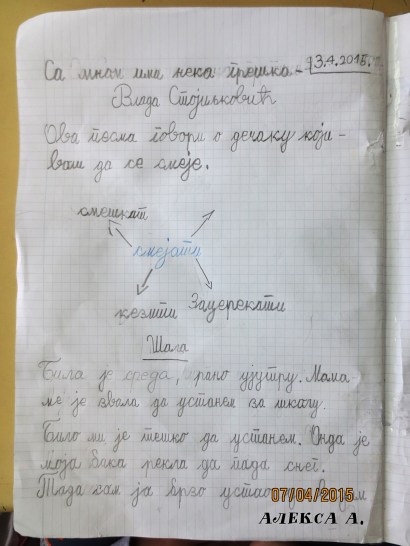 3.4.2015.
Са мном има нека грешка -
Влада Стојиљковић
Ова песма говори о дечаку који -
вам да се смеје.
смешкат
смејати
кезити Зацерекати
Шала
Била је среда, рано ујутру. Мама
ме је звала да устанем за школу.
Било ми је тешко да устанем. Онда је
моја бака рекла да пада снег.
Тада сам ја брзо устао
07/04/2015
АЛЕКСА А.